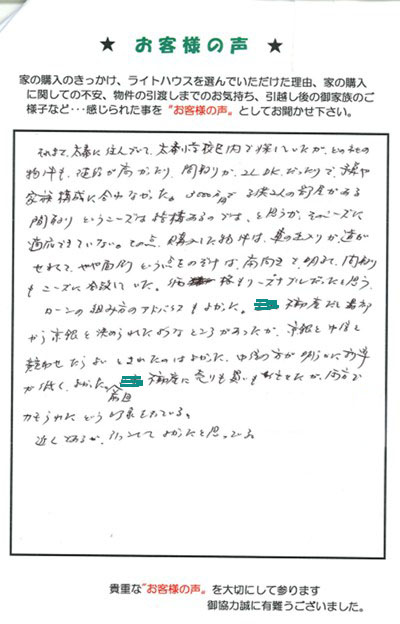 ★ お客様の声 ★
家の購入のきっかけ、ライトハウスを選んでいただけた理由、家の購入
に関しての不安、物件の引渡しまでのお気持ち、引越し後の御家族のご
様子など・・・感じられた事を"お客様の声"としてお聞かせ下さい。
それまで、太秦に住んでいて、太秦小学校区内で探していたが、どの
物件も、値段が高かったり、間取りが、2LDKだったりで、
家族構成に合わなかった。で子供2人の部屋がある
間取りというニーズは結構あるのでは、と思うが、そのニーズに
適応できていない。その点、購入した物件は、車の出入りが、道が
せまくて、やや面倒という点をのぞけば、南向きで、明るく、間取り
もニーズに合致していた。リーズナブルだったと思う。
ローンの組み方のアドバイスもよかった。不動産だと
から京銀と決められたようなところがあったが、京銀と中信と
競わせたらよいと言われたのはよかった。中信の方が明らかに
が低く、よかった。不動産に売りも買いもまかせたが、両方で
という印象をもっている。
近くであるが、引っこしてよかったと思っている。
貴重な"お客様の声"を大切にして参ります
御協力誠に有難うございました。